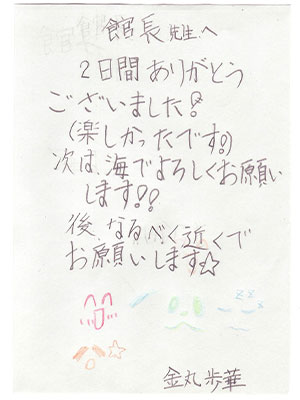 館長先生へ
2日間ありがとう
ございました!
(楽しかったです!)
次は、海でよろしくお願い
します!!
後、なるべく近くで
お願いします☆
金丸歩華